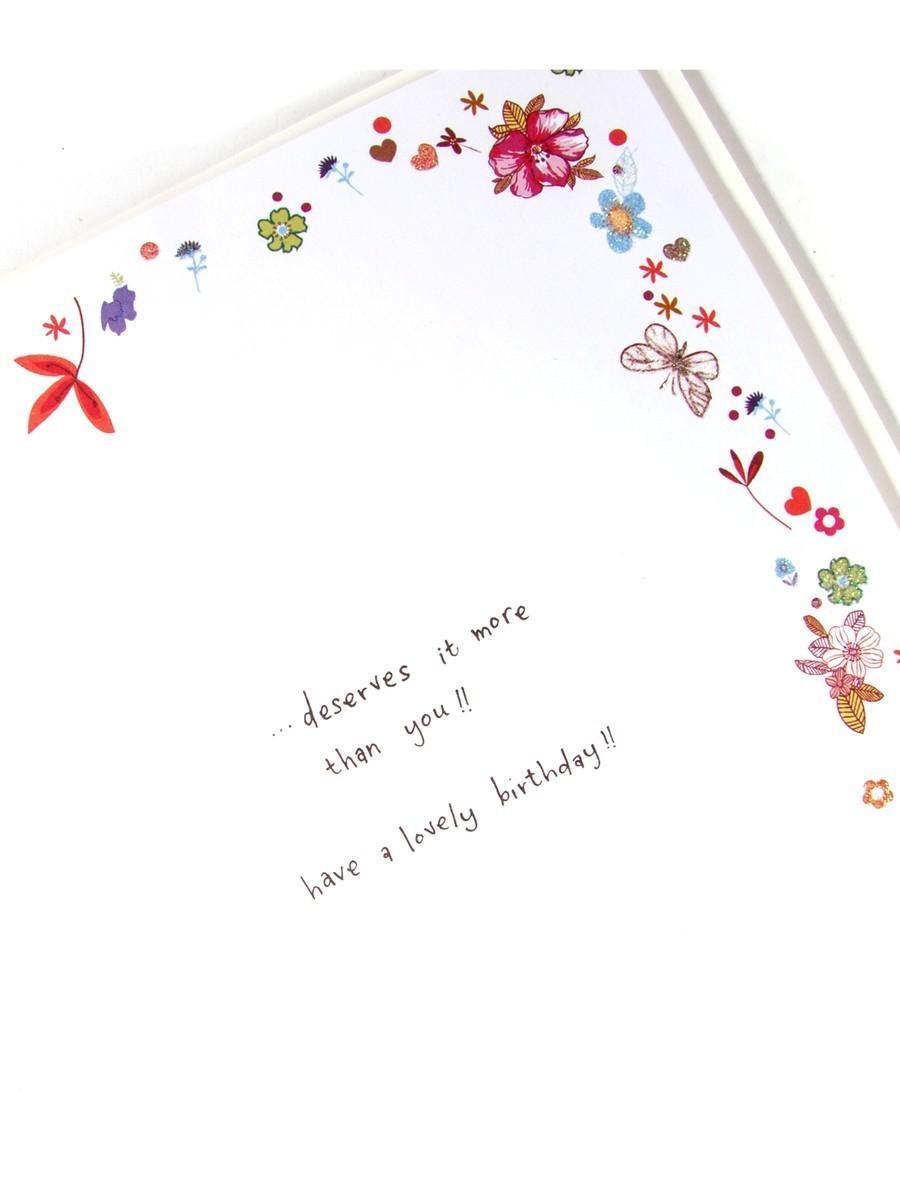 ...deserves it more
than you!!
have a lovely birthday!!